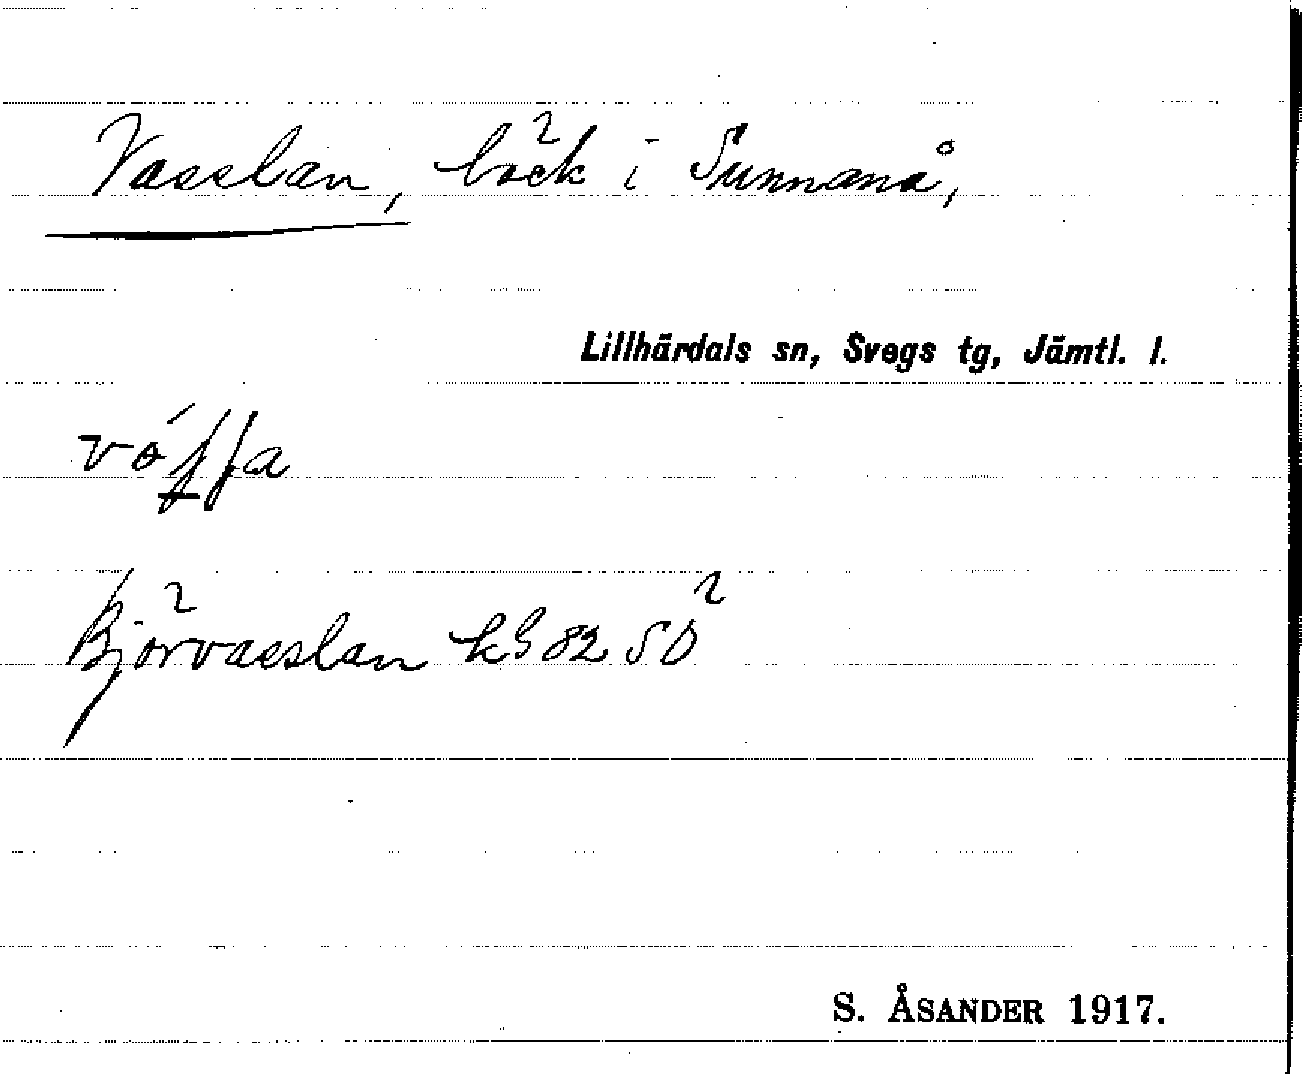 Vasslan, bäck i Sunnanå,
Lillhärdals sn, Svegs tg, Jämtl. l.
Björvasslan kS 82 SÖ
S. ÅSANDER 1917.